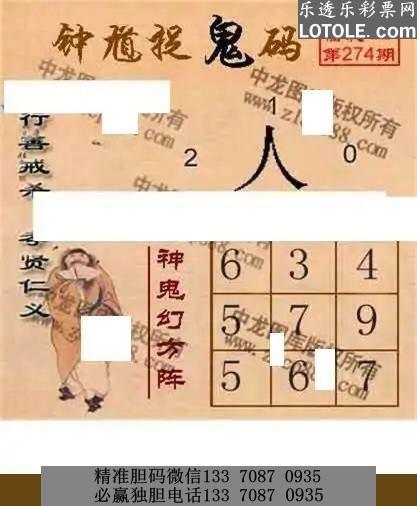 乐透乐彩票网
LOTOLE.COM
钟馗捉鬼码
第274期
1
人
2
0
行善戒杀
孝贤仁义
神鬼幻方阵
6 3 4
5 7 9
5 6 7
中龙图库版权所有
精准胆码微信133 7087 0935
必赢独胆电话133 7087 0935